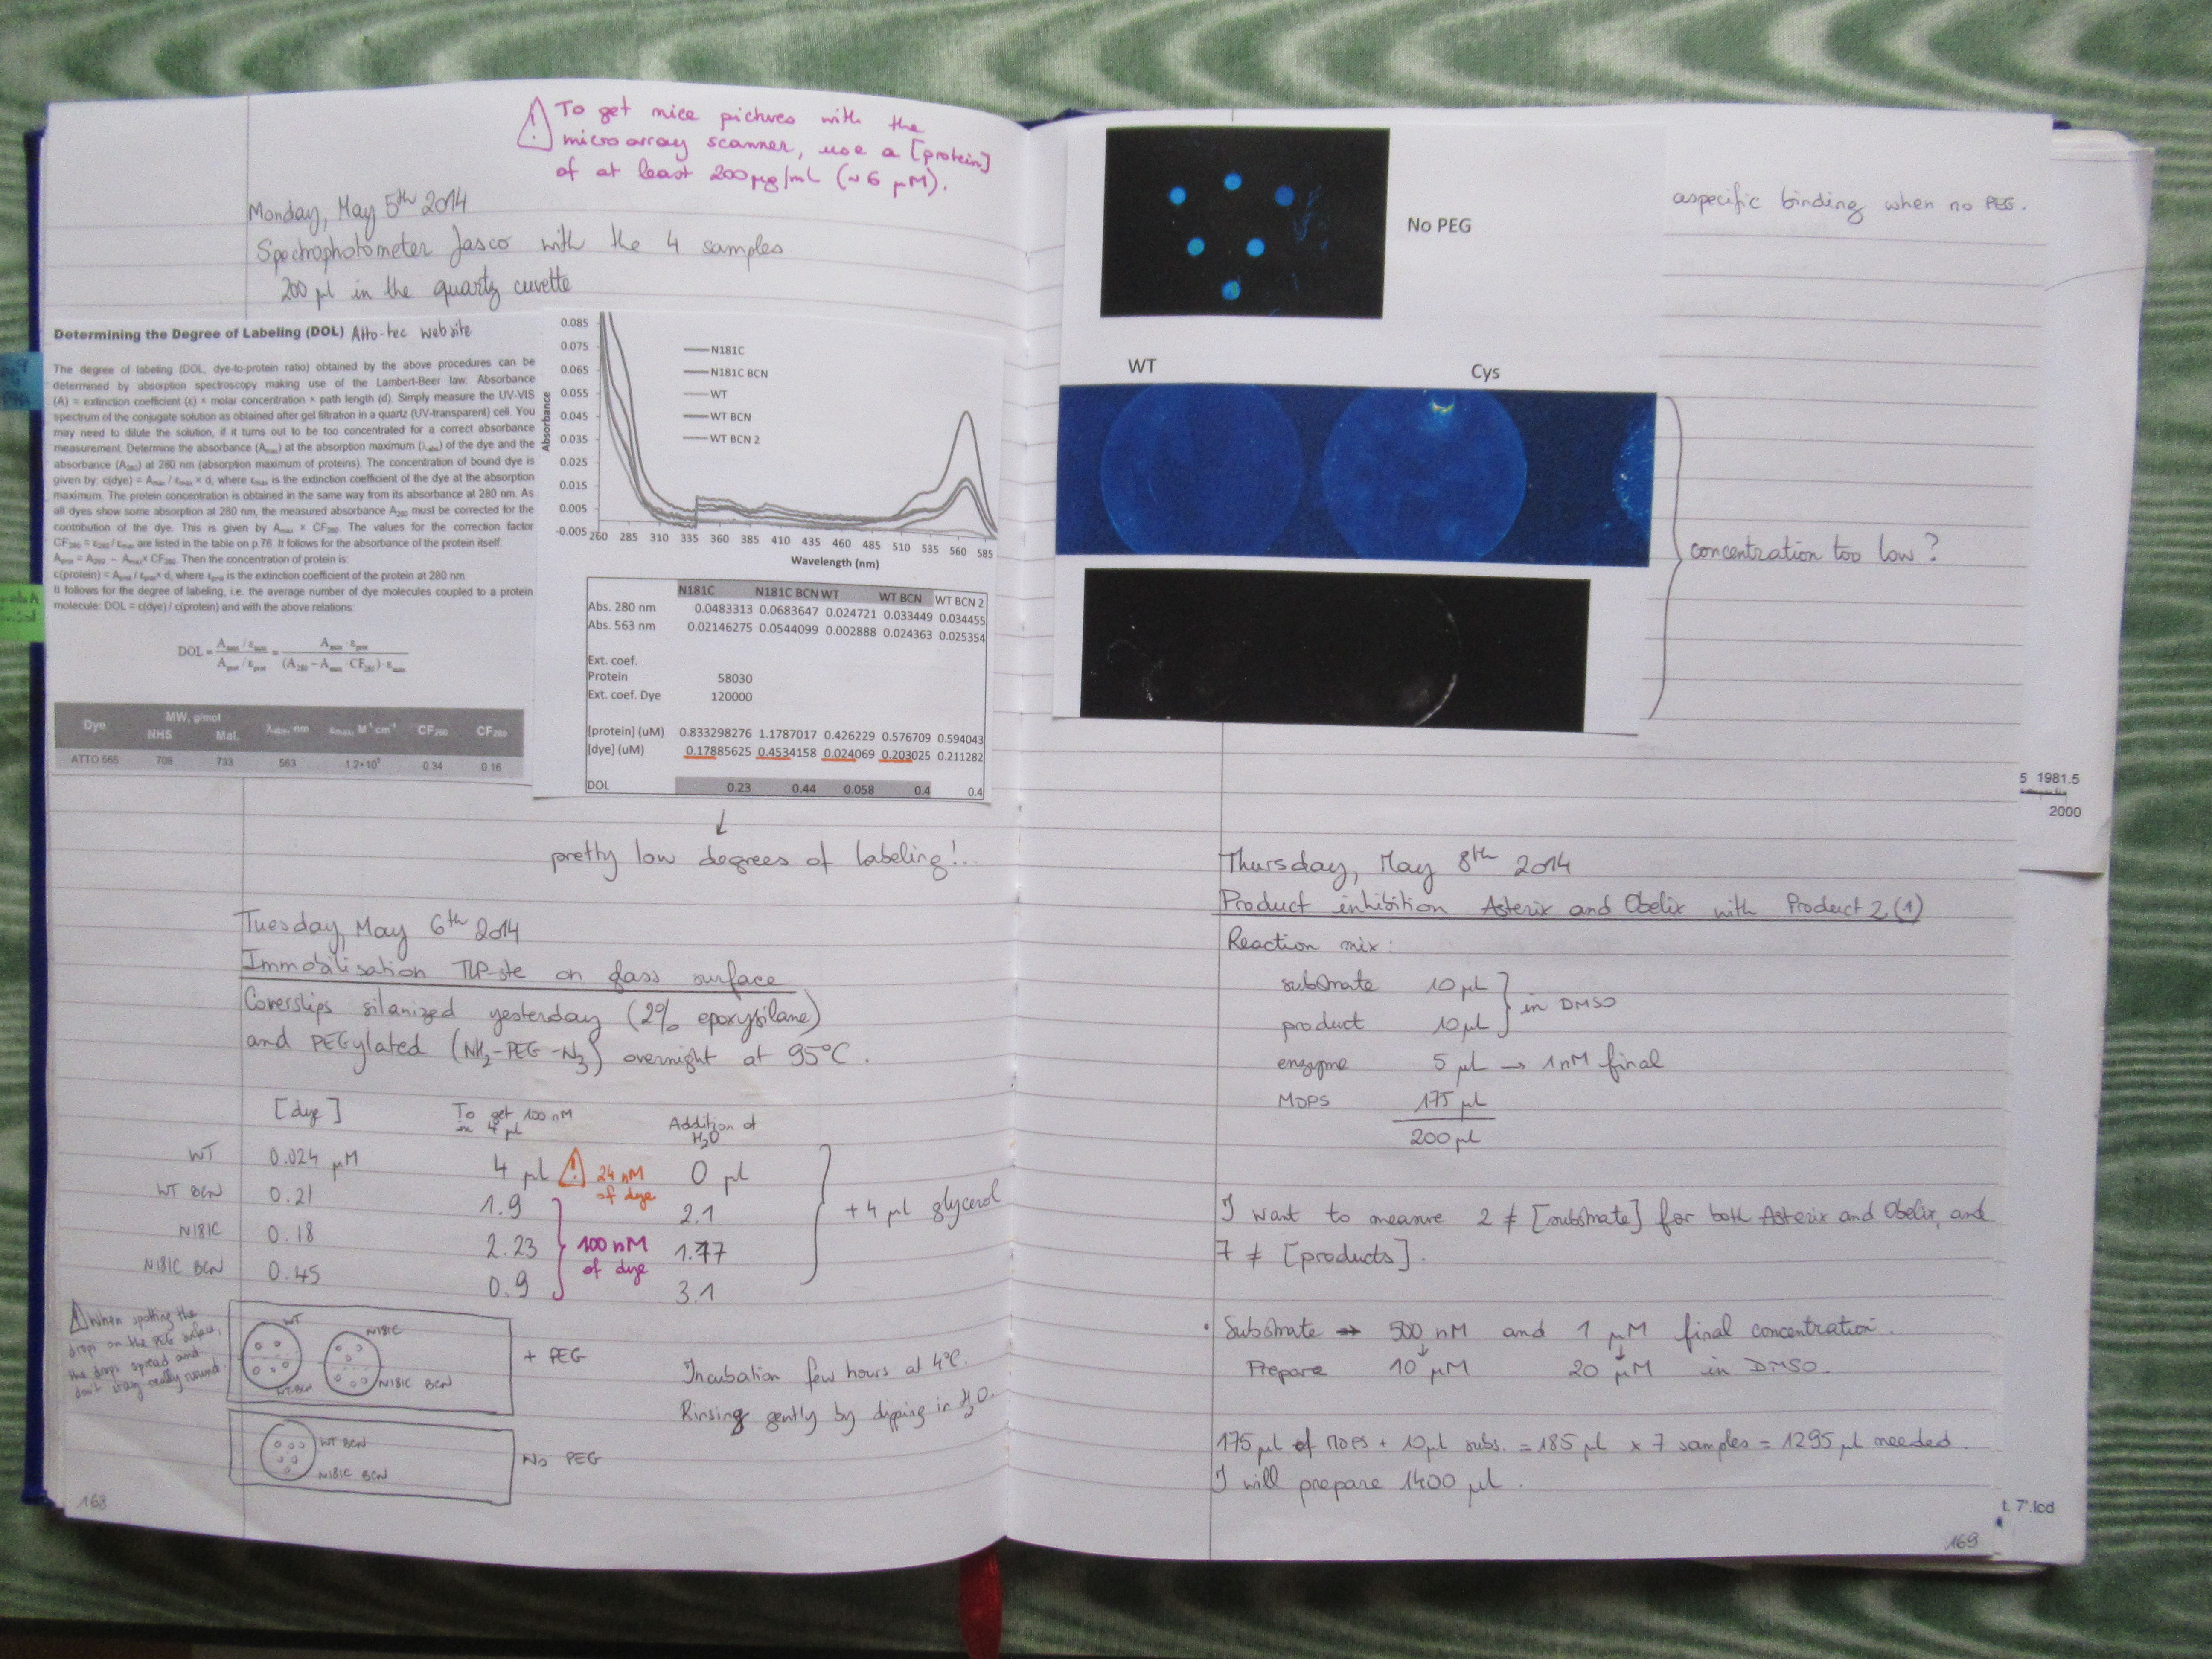 ⚠ To get nice pictures with the
microarray scanner, use a [protein]
of at least 200 µg/mL (~6 µM).
Monday, May 5th 2014
Spectrophotometer Jasco with the 4 samples
200 µl in the quartz cuvette
Determining the Degree of Labeling (DOL) Atto-tec website
The degree of labeling (DOL, dye-to-protein ratio) obtained by the above procedures can be
determined by absorption spectroscopy making use of the Lambert-Beer law: Absorbance
(A) = extinction coefficient (ε) × molar concentration × path length (d). Simply measure the UV-VIS
spectrum of the conjugate solution as obtained after gel filtration in a quartz (UV-transparent) cell. You
may need to dilute the solution, if it turns out to be too concentrated for a correct absorbance
measurement. Determine the absorbance (Amax) at the absorption maximum (λabs) of the dye and the
absorbance (A280) at 280 nm (absorption maximum of proteins). The concentration of bound dye is
given by: c(dye) = Amax / εmax × d, where εmax is the extinction coefficient of the dye at the absorption
maximum. The protein concentration is obtained in the same way from its absorbance at 280 nm. As
all dyes show some absorption at 280 nm, the measured absorbance A280 must be corrected for the
contribution of the dye. This is given by Amax × CF280. The values for the correction factor
CF280 = ε280 / εmax are listed in the table on p.76. It follows for the absorbance of the protein itself:
Aprot = A280 − Amax× CF280. Then the concentration of protein is:
c(protein) = Aprot / εprot× d, where εprot is the extinction coefficient of the protein at 280 nm.
It follows for the degree of labeling, i.e. the average number of dye molecules coupled to a protein
molecule: DOL = c(dye) / c(protein) and with the above relations:
DOL = Amax / εmax / Aprot / εprot = Amax · εprot / (A280 − Amax · CF280) · εmax
Dye MW, g/mol λabs, nm εmax, M-1 cm-1 CF260 CF280
NHS Mal.
ATTO 565 708 733 563 1.2×105 0.34 0.16
Absorbance
0.085
0.075
0.065
0.055
0.045
0.035
0.025
0.015
0.005
-0.005
N181C
N181C BCN
WT
WT BCN
WT BCN 2
260 285 310 335 360 385 410 435 460 485 510 535 560 585
Wavelength (nm)
N181C N181C BCN WT WT BCN WT BCN 2
Abs. 280 nm 0.0483313 0.0683647 0.024721 0.033449 0.034455
Abs. 563 nm 0.02146275 0.0544099 0.002888 0.024363 0.025354
Ext. coef.
Protein 58030
Ext. coef. Dye 120000
[protein] (uM) 0.833298276 1.1787017 0.426229 0.576709 0.594043
[dye] (uM) 0.17885625 0.4534158 0.024069 0.203025 0.211282
DOL 0.23 0.44 0.058 0.4 0.4
↓
pretty low degrees of labeling!..
Tuesday, May 6th 2014
Immobilisation TLP-ste on glass surface
Coverslips silanized yesterday (2% epoxysilane)
and PEGylated (NH2-PEG-N3) overnight at 95°C.
[dye] To get 100 nM in 4 µl Addition of H2O
WT 0.024 µM 4 µl ⚠ 24 nM of dye 0 µl
WT BCN 0.21 1.9 2.1
N181C 0.18 2.23 1.77
N181C BCN 0.45 0.9 3.1
100 nM
of dye
+ 4 µl glycerol
⚠ When spotting the
drops on the PEG surface,
the drops spread and
don't stay really round.
WT
N181C
WT-BCN
N181C BCN
+ PEG
Incubation few hours at 4°C.
Rinsing gently by dipping in H2O.
WT BCN
N181C BCN
No PEG
168
No PEG
aspecific binding when no PEG.
WT
Cys
concentration too low ?
5 1981.5
2000
Thursday, May 8th 2014
Product inhibition Asterix and Obelix with Product 2 (1)
Reaction mix:
substrate 10 µl
product 10 µl
in DMSO
enzyme 5 µl → 1 nM final
MOPS 175 µl
200 µl
I want to measure 2 ≠ [substrate] for both Asterix and Obelix, and
7 ≠ [products].
• Substrate → 500 nM and 1 µM final concentration.
Prepare 10 µM 20 µM in DMSO.
175 µl of MOPS + 10 µl subs. = 185 µl x 7 samples = 1295 µl needed.
I will prepare 1400 µl.
t. 7'.lcd
169